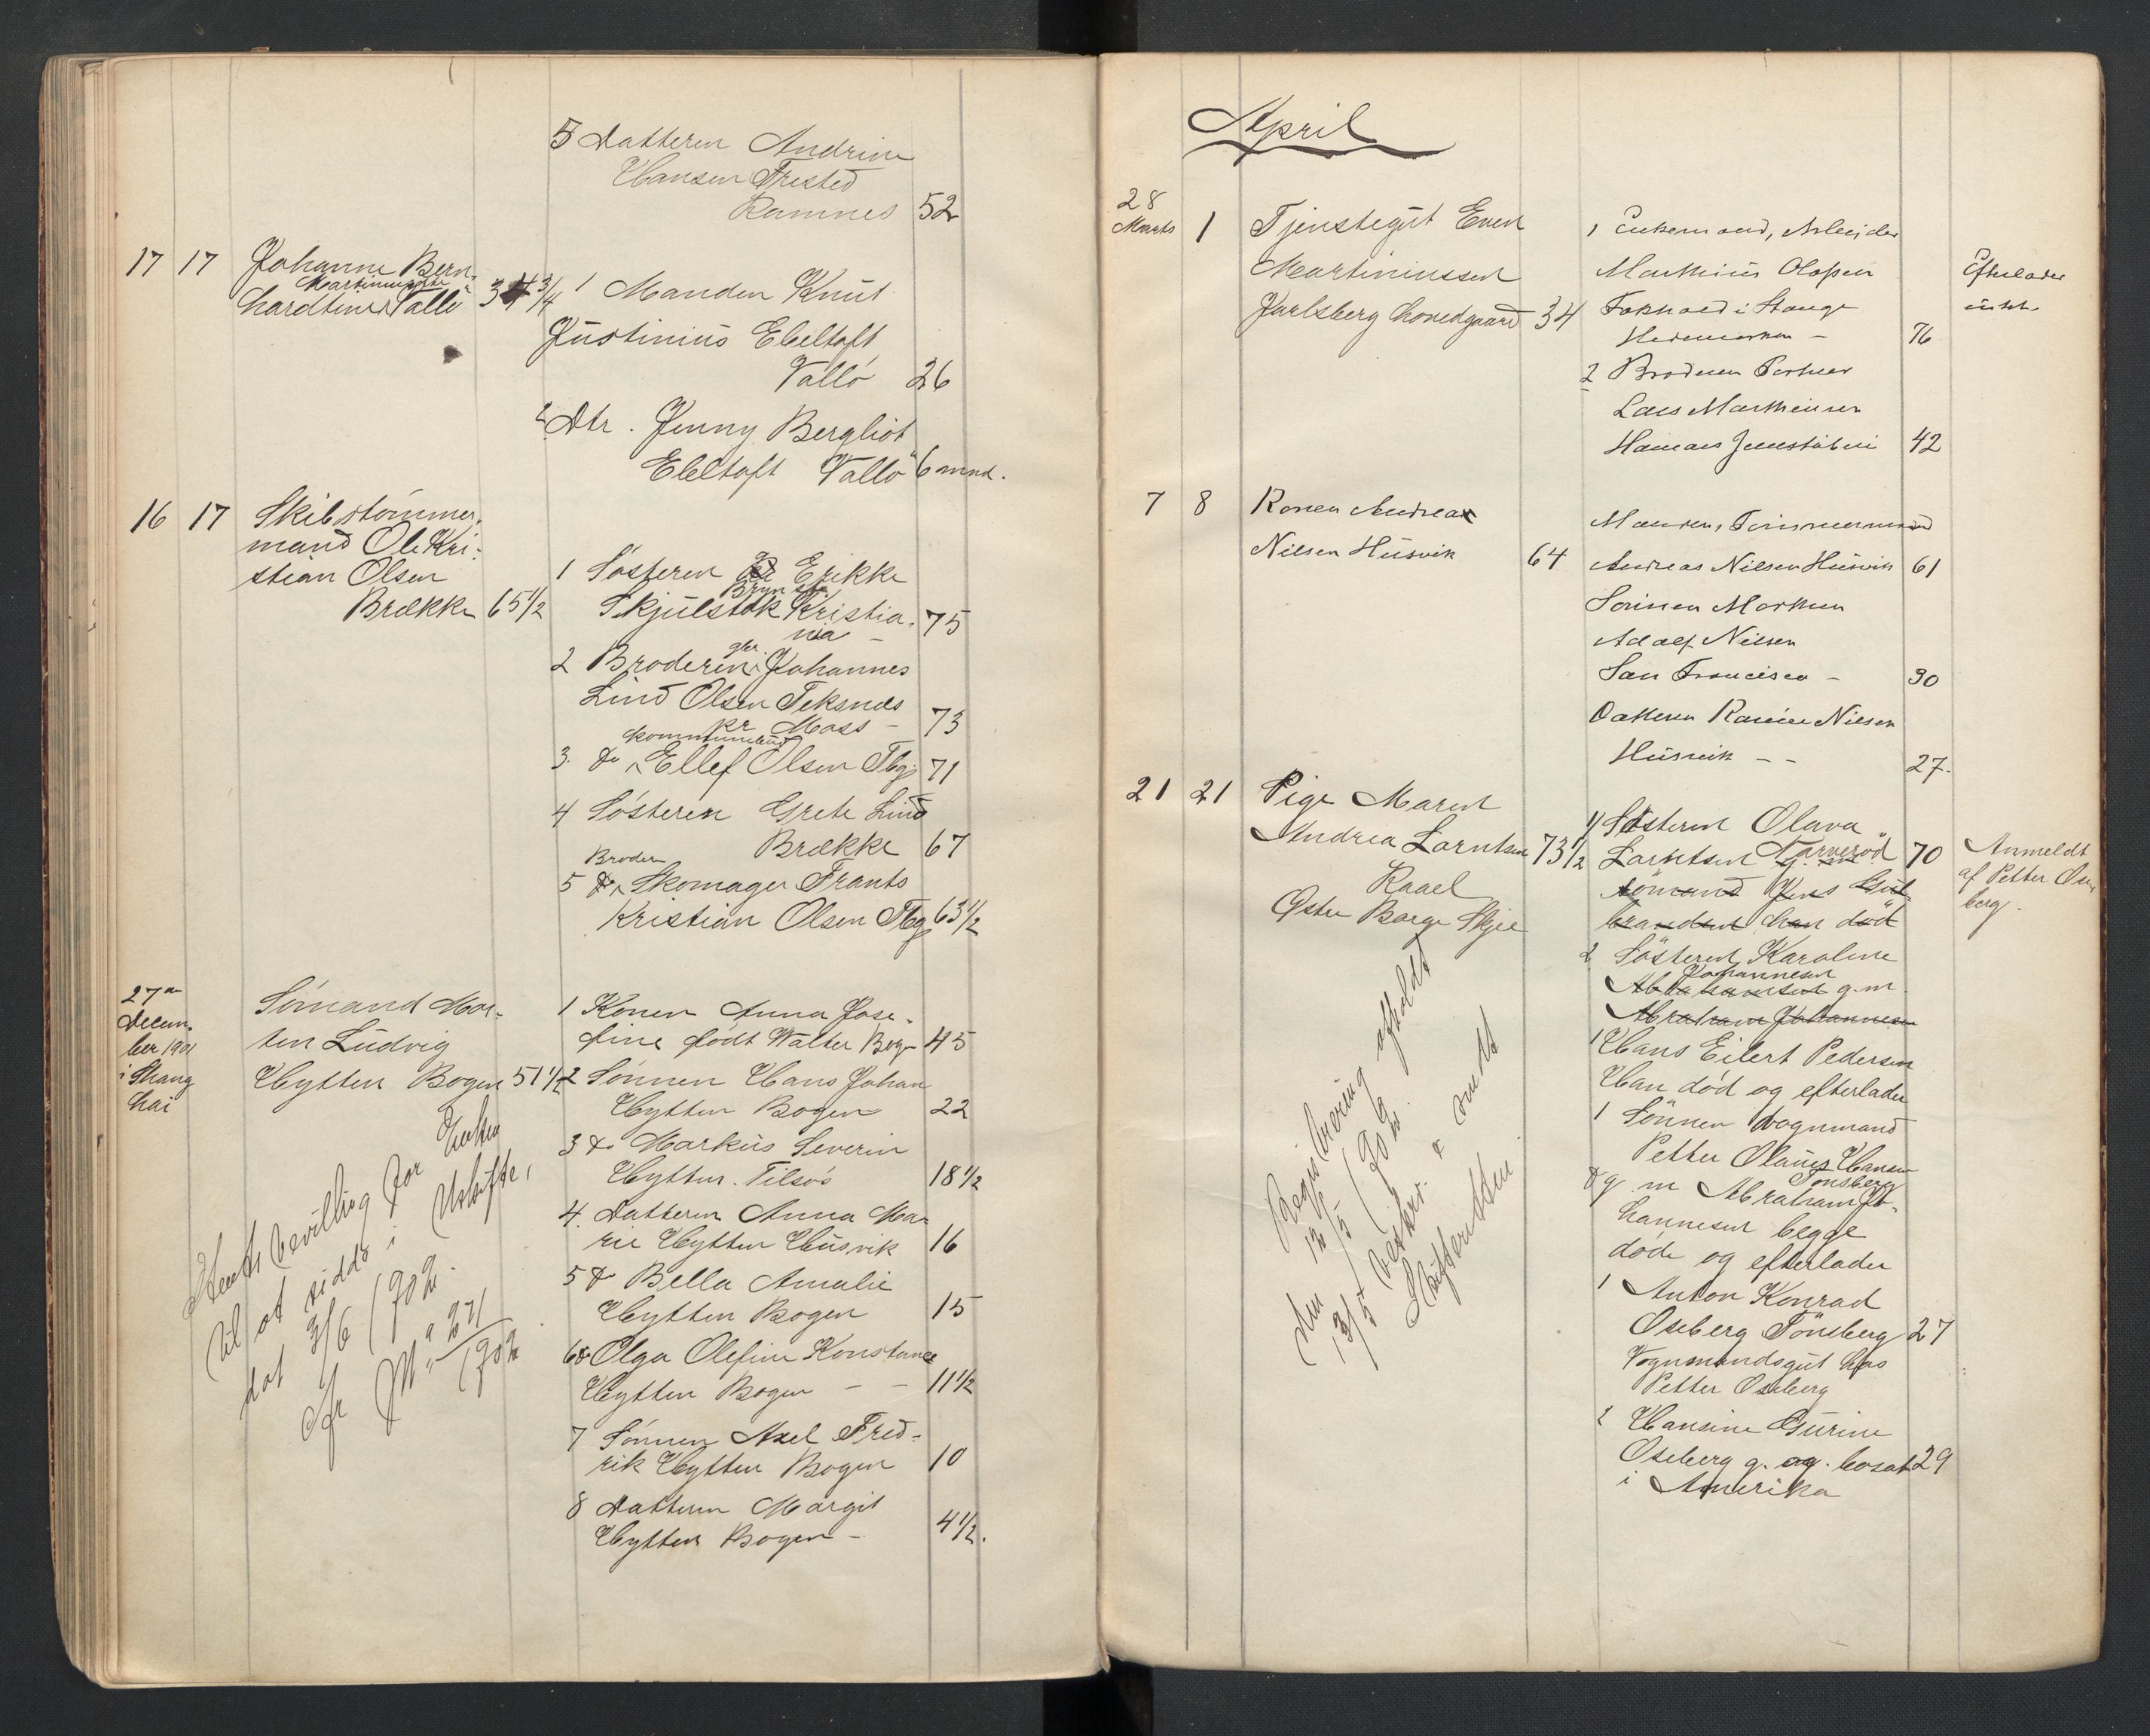 5 Datteren Andrine
Hansen Frested
Ramnes 52
17 17 Johanne Bern-
Martinusdtr
hardtine Vallö 34 3/4
1 Manden Knut
Justinius Ebeltoft
Vallö 26
2 Dtr. Jenny Bergliot
Ebeltoft Vallö 6 mnd.
16 17 Skibstømmer-
mand Ole Kri-
stian Olsen
Brække 65 1/2
1 Søsteren Erikke
Skjulstok Kristia-
nia - 75
2 Broderen Johannes
Lind Olsen Teksnes
pr Moss - 73
3. Do Ellef Olsen Tbg 71
4 Søsteren Grete Lind
Brække 67
Broder
5 Do Skomager Frants
Kristian Olsen Tbg 63 1/2
27de
Decem-
ber 1901
i Shang
hai
Sømand Mor-
ten Ludvig
Hytten Bogen 51 1/2
1 Konen Anna Jose-
fine født Walter Bog- 45
2 Sønnen Hans Johan
Hytten Bogen 22
3 Do Markus Severin
Hytten. Tilsøs 18 1/2
4. Datteren Anna Ma-
rie Hytten Husvik 16
5 Do Bella Amalie
Hytten Bogen 15
6 Do Olga Olefine Konstance
Hytten Bogen - - 11 1/2
7 Sønnen Axel Fred-
rik Hytten Bogen 10
8 Datteren Margit
Hytten Bogen - 4 1/2.
bevilling for Enken
til at sidde i Uskifte,
dat 3/6 1902.
April
28
Marts 1 Tjenestegut Even
Martiniussen
Jarlsberg Hovedgaard 34
1 Enkemand, Arbeider
Marthinus Olafsen
i Stange
Hedemarken - 76
2 Broderen Portner
Lars Marthinsen
Hamars 42
Efterlader
intet.
7 8 Konen Andrea
Nilsen Husvik 64
Manden, Tømmermand
Andreas Nilsen Husvik 61
Sønnen Marthin
Adolf Nilsen
San Francisco - 30
Datteren Karine Nilsen
Husvik - - 27.
21 21 Pige Maren
Andrea Larntsen 73 1/2
Raael
Østre Borge Skjee
1/ Søsteren Olava
Larntsen Tarverød 70
sömand Jens Gul-
brandsen han död
2 Søsteren Karoline
Johannesen
g.m.
Abraham Johannesen
1 Hans Eilert Pedersen
Han död og efterlader
1 Sönnen Vognmand
Petter Olaus Hansen
Tönsberg
& g m Abraham Jo-
hannesen begge
döde og efterlader
1 Anton Konrad
Oseberg Tönsberg 27
Vognmandsgut hos
Petter Oseberg
2 Hansine Gurine
Oseberg g. og. bosat 29
i Amerika
Anmeldt
af Petter Ose-
berg.
Registrering afholdt
den 12/5 1902.
13/5